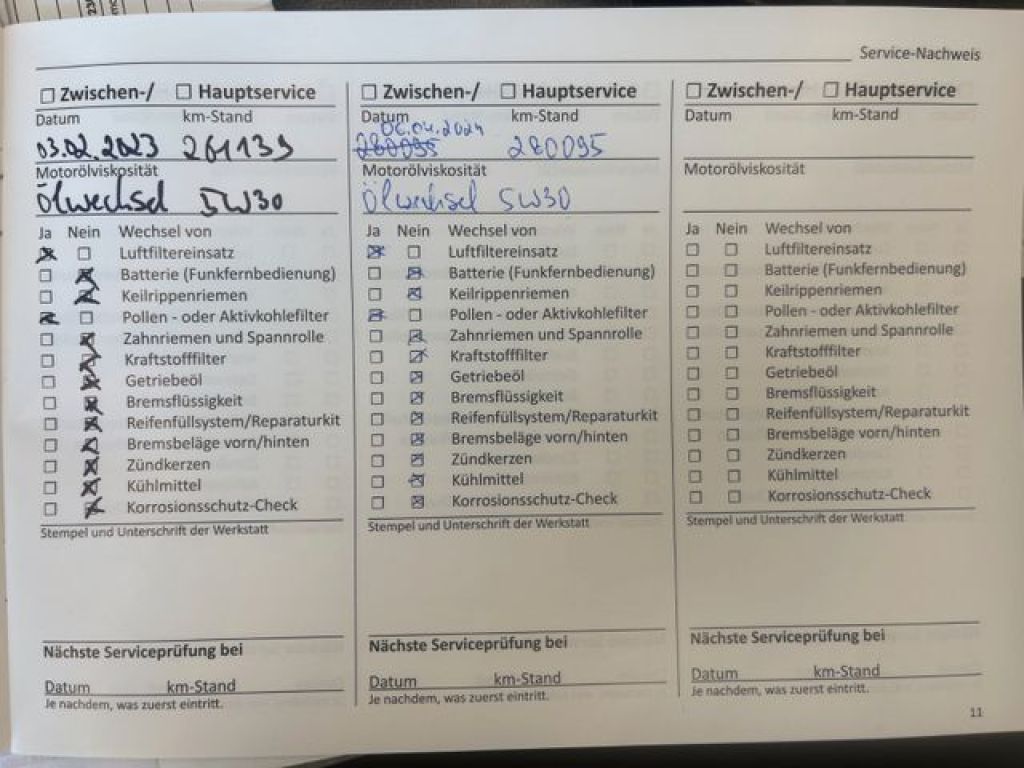 Service-Nachweis
☐ Zwischen-/ ☐ Hauptservice
Datum km-Stand
03.02.2023 261139
Motorölviskosität
Ölwechsel 5W30
Ja Nein Wechsel von
☒ ☐ Luftfiltereinsatz
☐ ☒ Batterie (Funkfernbedienung)
☐ ☒ Keilrippenriemen
☒ ☐ Pollen - oder Aktivkohlefilter
☐ ☒ Zahnriemen und Spannrolle
☐ ☒ Kraftstofffilter
☐ ☒ Getriebeöl
☐ ☒ Bremsflüssigkeit
☐ ☒ Reifenfüllsystem/Reparaturkit
☐ ☒ Bremsbeläge vorn/hinten
☐ ☒ Zündkerzen
☐ ☒ Kühlmittel
☐ ☒ Korrosionsschutz-Check
Stempel und Unterschrift der Werkstatt
Nächste Serviceprüfung bei
Datum km-Stand
Je nachdem, was zuerst eintritt.
☐ Zwischen-/ ☐ Hauptservice
Datum km-Stand
06.04.2024
280095 280095
Motorölviskosität
Ölwechsel 5W30
Ja Nein Wechsel von
☒ ☐ Luftfiltereinsatz
☐ ☒ Batterie (Funkfernbedienung)
☐ ☒ Keilrippenriemen
☒ ☐ Pollen - oder Aktivkohlefilter
☐ ☒ Zahnriemen und Spannrolle
☐ ☒ Kraftstofffilter
☐ ☒ Getriebeöl
☐ ☒ Bremsflüssigkeit
☐ ☒ Reifenfüllsystem/Reparaturkit
☐ ☒ Bremsbeläge vorn/hinten
☐ ☒ Zündkerzen
☐ ☒ Kühlmittel
☐ ☒ Korrosionsschutz-Check
Stempel und Unterschrift der Werkstatt
Nächste Serviceprüfung bei
Datum km-Stand
Je nachdem, was zuerst eintritt.
☐ Zwischen-/ ☐ Hauptservice
Datum km-Stand
Motorölviskosität
Ja Nein Wechsel von
☐ ☐ Luftfiltereinsatz
☐ ☐ Batterie (Funkfernbedienung)
☐ ☐ Keilrippenriemen
☐ ☐ Pollen - oder Aktivkohlefilter
☐ ☐ Zahnriemen und Spannrolle
☐ ☐ Kraftstofffilter
☐ ☐ Getriebeöl
☐ ☐ Bremsflüssigkeit
☐ ☐ Reifenfüllsystem/Reparaturkit
☐ ☐ Bremsbeläge vorn/hinten
☐ ☐ Zündkerzen
☐ ☐ Kühlmittel
☐ ☐ Korrosionsschutz-Check
Stempel und Unterschrift der Werkstatt
Nächste Serviceprüfung bei
Datum km-Stand
Je nachdem, was zuerst eintritt.
11